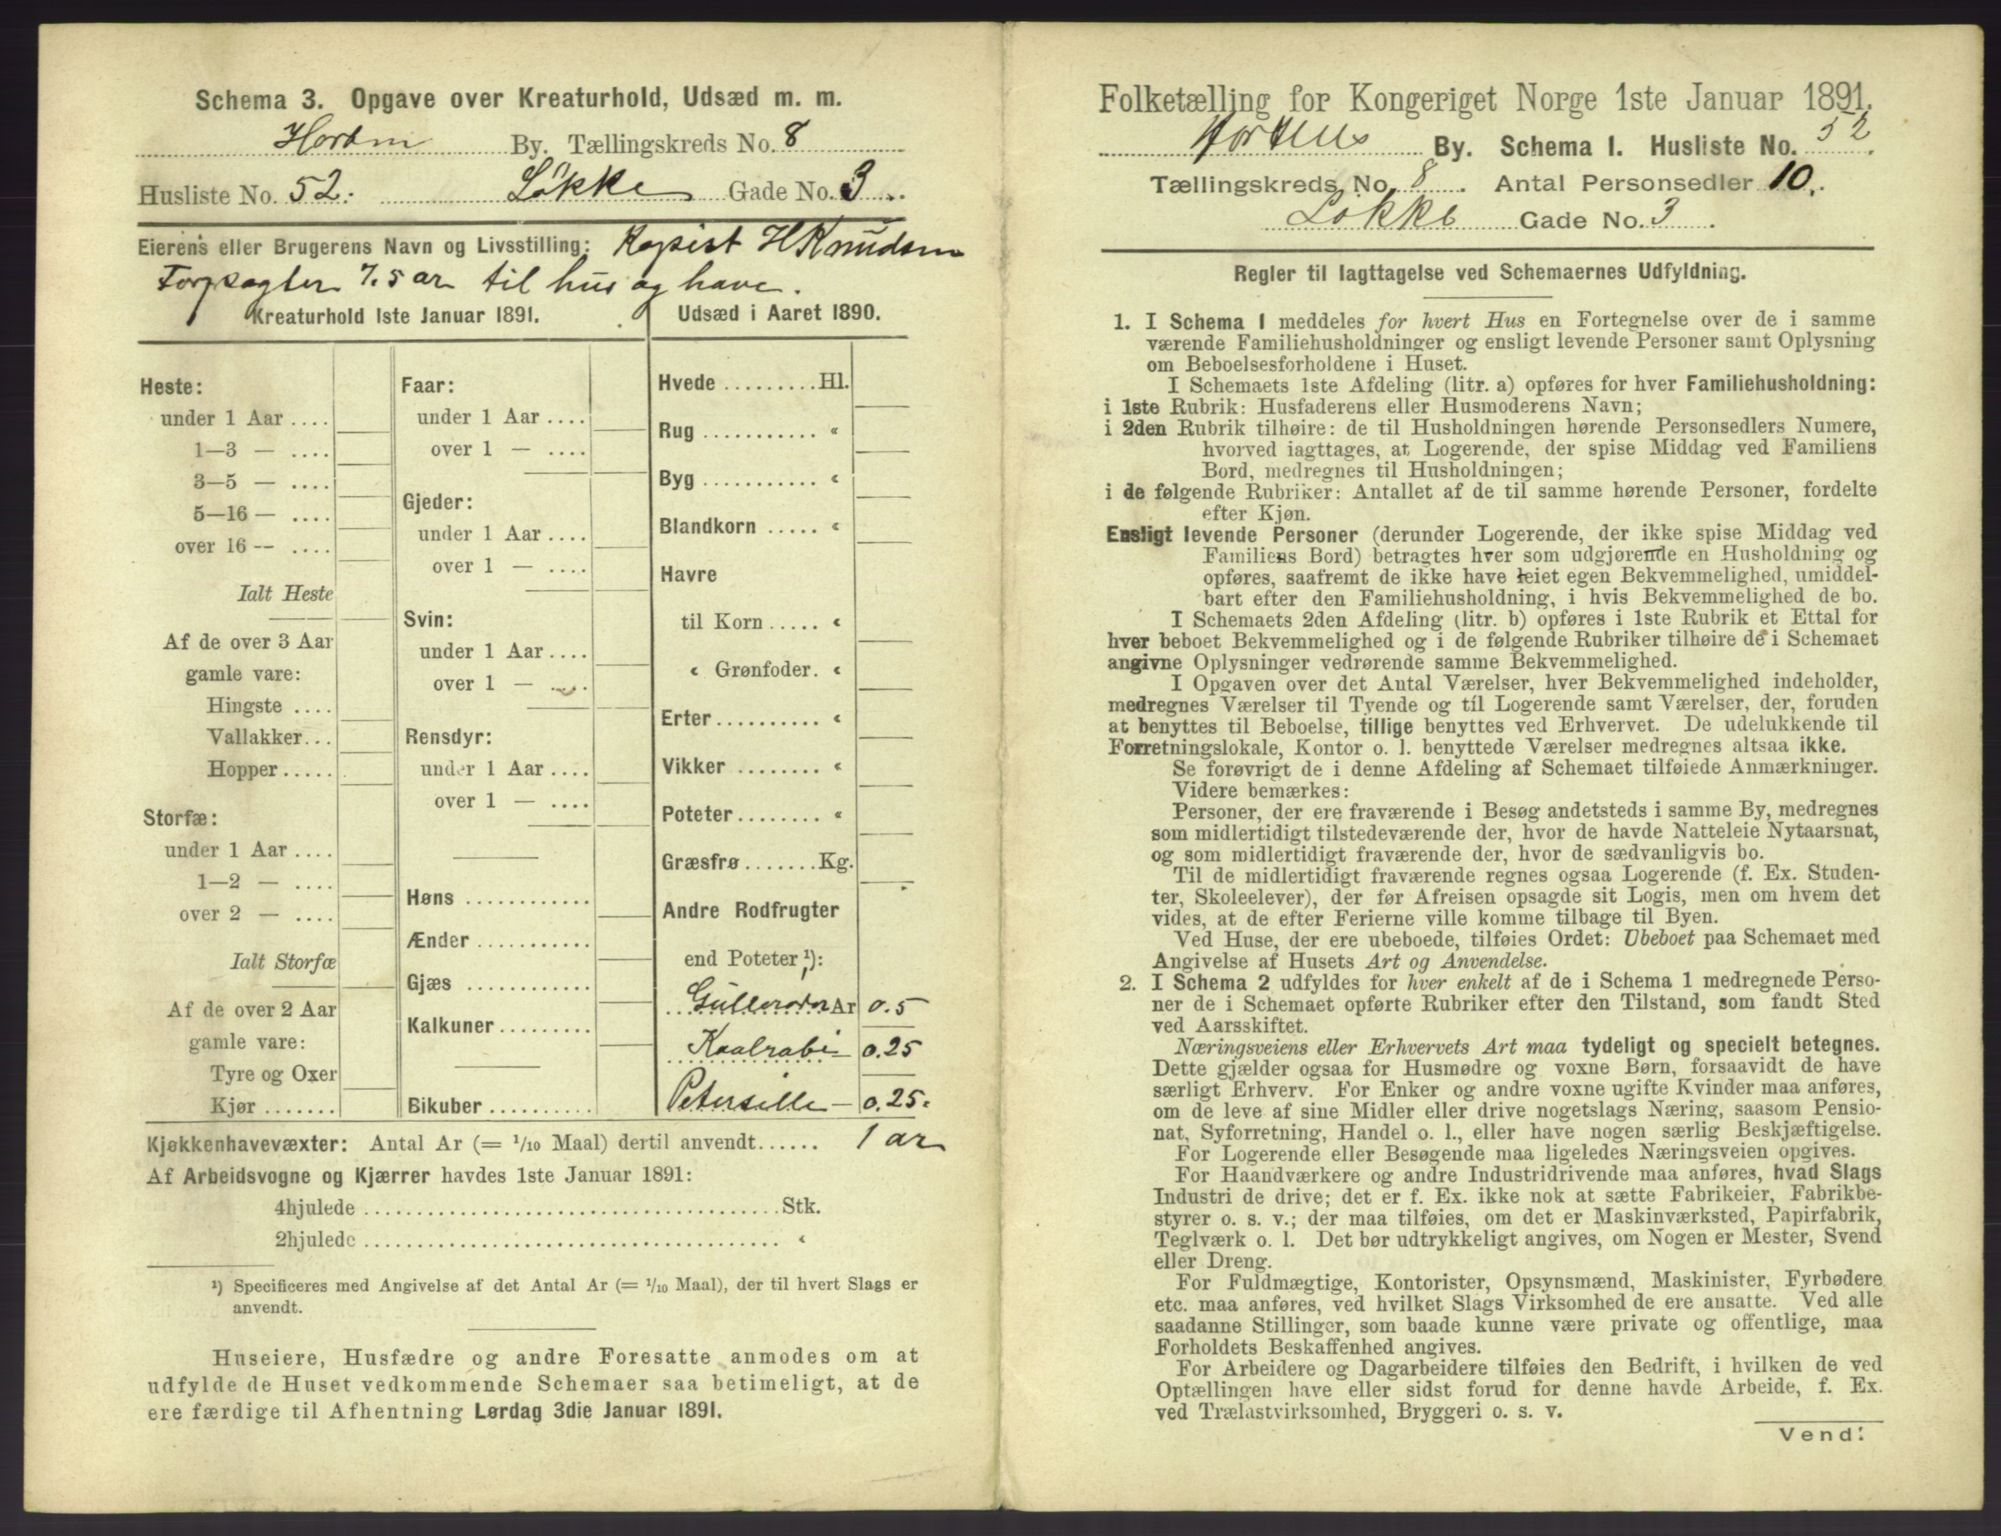 Schema 3. Opgave over Kreaturhold, Udsæd m. m.
Horten By. Tællingskreds No. 8
Husliste No. 52. Løkke Gade No. 3
Eierens eller Brugerens Navn og Livsstilling: Kopist H Knudsen
7.5 ar til hus og have.
Kreaturhold 1ste Januar 1891.
Heste:
under 1 Aar ....
1—3 — ....
3—5 — ....
5—16 — ....
over 16 — ....
Ialt Heste
Af de over 3 Aar
gamle vare:
Hingste ....
Vallakker...
Hopper.....
Storfæ:
under 1 Aar ....
1—2 — ....
over 2 — ....
Ialt Storfæ
Af de over 2 Aar
gamle vare:
Tyre og Oxer
Kjør .......
Faar:
under 1 Aar ....
over 1 — ....
Gjeder:
under 1 Aar ....
over 1 — ....
Svin:
under 1 Aar ....
over 1 — ....
Rensdyr:
under 1 Aar ....
over 1 — ....
Høns ............
Ænder ...........
Gjæs ............
Kalkuner .........
Bikuber ..........
Udsæd i Aaret 1890.
Hvede .........Hl.
Rug ........... «
Byg ........... «
Blandkorn ..... «
Havre
til Korn ..... «
« Grønfoder. «
Erter.......... «
Vikker ........ «
Poteter........ «
Græsfrø .......Kg.
Andre Rodfrugter
end Poteter ¹):
Gullerøder Ar 0.5
Kaalrabi 0.25
Petersille — 0.25.
Kjøkkenhavevæxter: Antal Ar (= 1/10 Maal) dertil anvendt...... 1 ar
Af Arbeidsvogne og Kjærrer havdes 1ste Januar 1891:
4hjulede ......................................Stk.
2hjulede ...................................... «
¹) Specificeres med Angivelse af det Antal Ar (= 1/10 Maal), der til hvert Slags er
anvendt.
Huseiere, Husfædre og andre Foresatte anmodes om at
udfylde de Huset vedkommende Schemaer saa betimeligt, at de
ere færdige til Afhentning Lørdag 3die Januar 1891.
Folketælling for Kongeriget Norge 1ste Januar 1891.
Hortens By. Schema 1. Husliste No. 52
Tællingskreds No. 8. Antal Personsedler 10.
Løkke Gade No. 3.
Regler til Iagttagelse ved Schemaernes Udfyldning.
1. I Schema 1 meddeles for hvert Hus en Fortegnelse over de i samme
værende Familiehusholdninger og ensligt levende Personer samt Oplysning
om Beboelsesforholdene i Huset.
I Schemaets 1ste Afdeling (litr. a) opføres for hver Familiehusholdning:
i 1ste Rubrik: Husfaderens eller Husmoderens Navn;
i 2den Rubrik tilhøire: de til Husholdningen hørende Personsedlers Numere,
hvorved iagttages, at Logerende, der spise Middag ved Familiens
Bord, medregnes til Husholdningen;
i de følgende Rubriker: Antallet af de til samme hørende Personer, fordelte
efter Kjøn.
Ensligt levende Personer (derunder Logerende, der ikke spise Middag ved
Familiens Bord) betragtes hver som udgjørende en Husholdning og
opføres, saafremt de ikke have leiet egen Bekvemmelighed, umiddel-
bart efter den Familiehusholdning, i hvis Bekvemmelighed de bo.
I Schemaets 2den Afdeling (litr. b) opføres i 1ste Rubrik et Ettal for
hver beboet Bekvemmelighed og i de følgende Rubriker tilhøire de i Schemaet
angivne Oplysninger vedrørende samme Bekvemmelighed.
I Opgaven over det Antal Værelser, hver Bekvemmelighed indeholder,
medregnes Værelser til Tyende og til Logerende samt Værelser, der, foruden
at benyttes til Beboelse, tillige benyttes ved Erhvervet. De udelukkende til
Forretningslokale, Kontor o. l. benyttede Værelser medregnes altsaa ikke.
Se forøvrigt de i denne Afdeling af Schemaet tilføiede Anmærkninger.
Videre bemærkes:
Personer, der ere fraværende i Besøg andetsteds i samme By, medregnes
som midlertidigt tilstedeværende der, hvor de havde Natteleie Nytaarsnat,
og som midlertidigt fraværende der, hvor de sædvanligvis bo.
Til de midlertidigt fraværende regnes ogsaa Logerende (f. Ex. Studen-
ter, Skoleelever), der før Afreisen opsagde sit Logis, men om hvem det
vides, at de efter Ferierne ville komme tilbage til Byen.
Ved Huse, der ere ubeboede, tilføies Ordet: Ubeboet paa Schemaet med
Angivelse af Husets Art og Anvendelse.
2. I Schema 2 udfyldes for hver enkelt af de i Schema 1 medregnede Perso-
ner de i Schemaet opførte Rubriker efter den Tilstand, som fandt Sted
ved Aarsskiftet.
Næringsveiens eller Erhvervets Art maa tydeligt og specielt betegnes.
Dette gjælder ogsaa for Husmødre og voxne Børn, forsaavidt de have
særligt Erhverv. For Enker og andre voxne ugifte Kvinder maa anføres,
om de leve af sine Midler eller drive nogetslags Næring, saasom Pensio-
nat, Syforretning, Handel o. l., eller have nogen særlig Beskjæftigelse.
For Logerende eller Besøgende maa ligeledes Næringsveien opgives.
For Haandværkere og andre Industridrivende maa anføres, hvad Slags
Industri de drive; det er f. Ex. ikke nok at sætte Fabrikeier, Fabrikbe-
styrer o. s. v.; der maa tilføies, om det er Maskinværksted, Papirfabrik,
Teglværk o. l. Det bør udtrykkeligt angives, om Nogen er Mester, Svend
eller Dreng.
For Fuldmægtige, Kontorister, Opsynsmænd, Maskinister, Fyrbødere
etc. maa anføres, ved hvilket Slags Virksomhed de ere ansatte. Ved alle
saadanne Stillinger, som baade kunne være private og offentlige, maa
Forholdets Beskaffenhed angives.
For Arbeidere og Dagarbeidere tilføies den Bedrift, i hvilken de ved
Optællingen have eller sidst forud for denne havde Arbeide, f. Ex.
ved Trælastvirksomhed, Bryggeri o. s. v.
Vend!